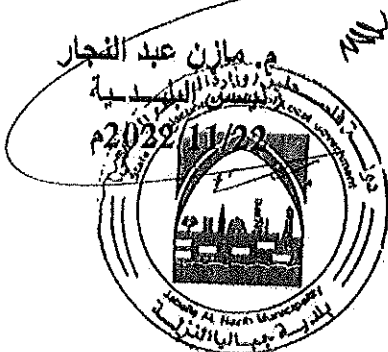 م. مازن عبد النجار
رئيس البلدية
2022/11/22م
دولة فلسطين
وزارة
Local government
Jabalia Al Nazla Municipality
بلدية جباليا النزلة